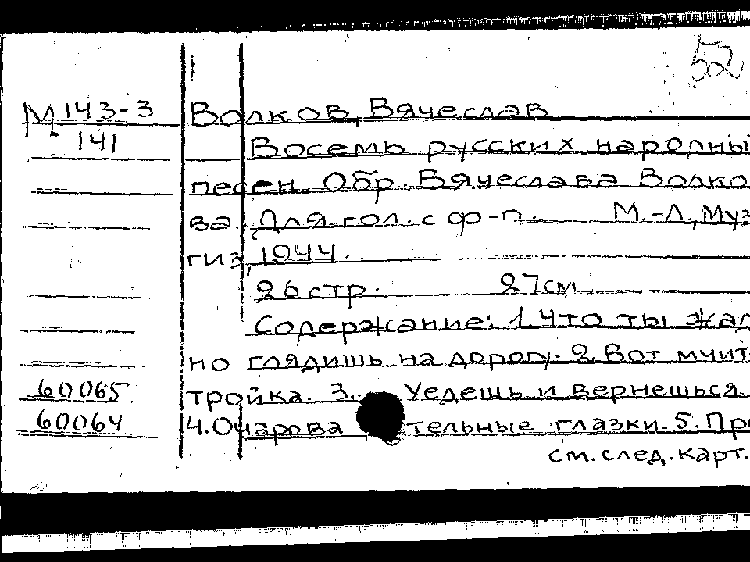 52
М 143-3
141
Волков, Вячеслав
Восемь русских народны
песен. Обр. Вячеслава Волко-
ва. Для гол. с ф-п. М.-Л., Муз
гиз, 1944.
26 стр. 27 см
Содержание: 1. Что ты жад
но глядишь на дорогу. 2. Вот мчит
тройка. 3. Уедешь и вернешься.
4. Очарова тельные глазки. 5. Пр
см. след. карт.
60065
60064